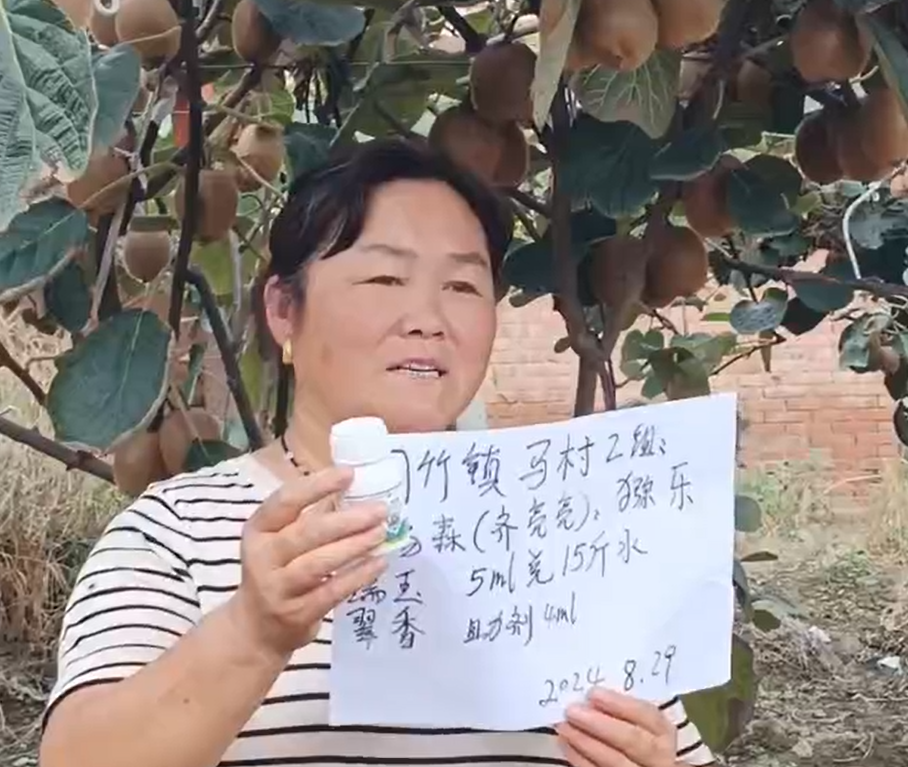 竹镇 马村2组:
森(齐亮亮)、猕乐
瑞玉 5ml兑15斤水
翠香 助剂4ml
2024 8.29